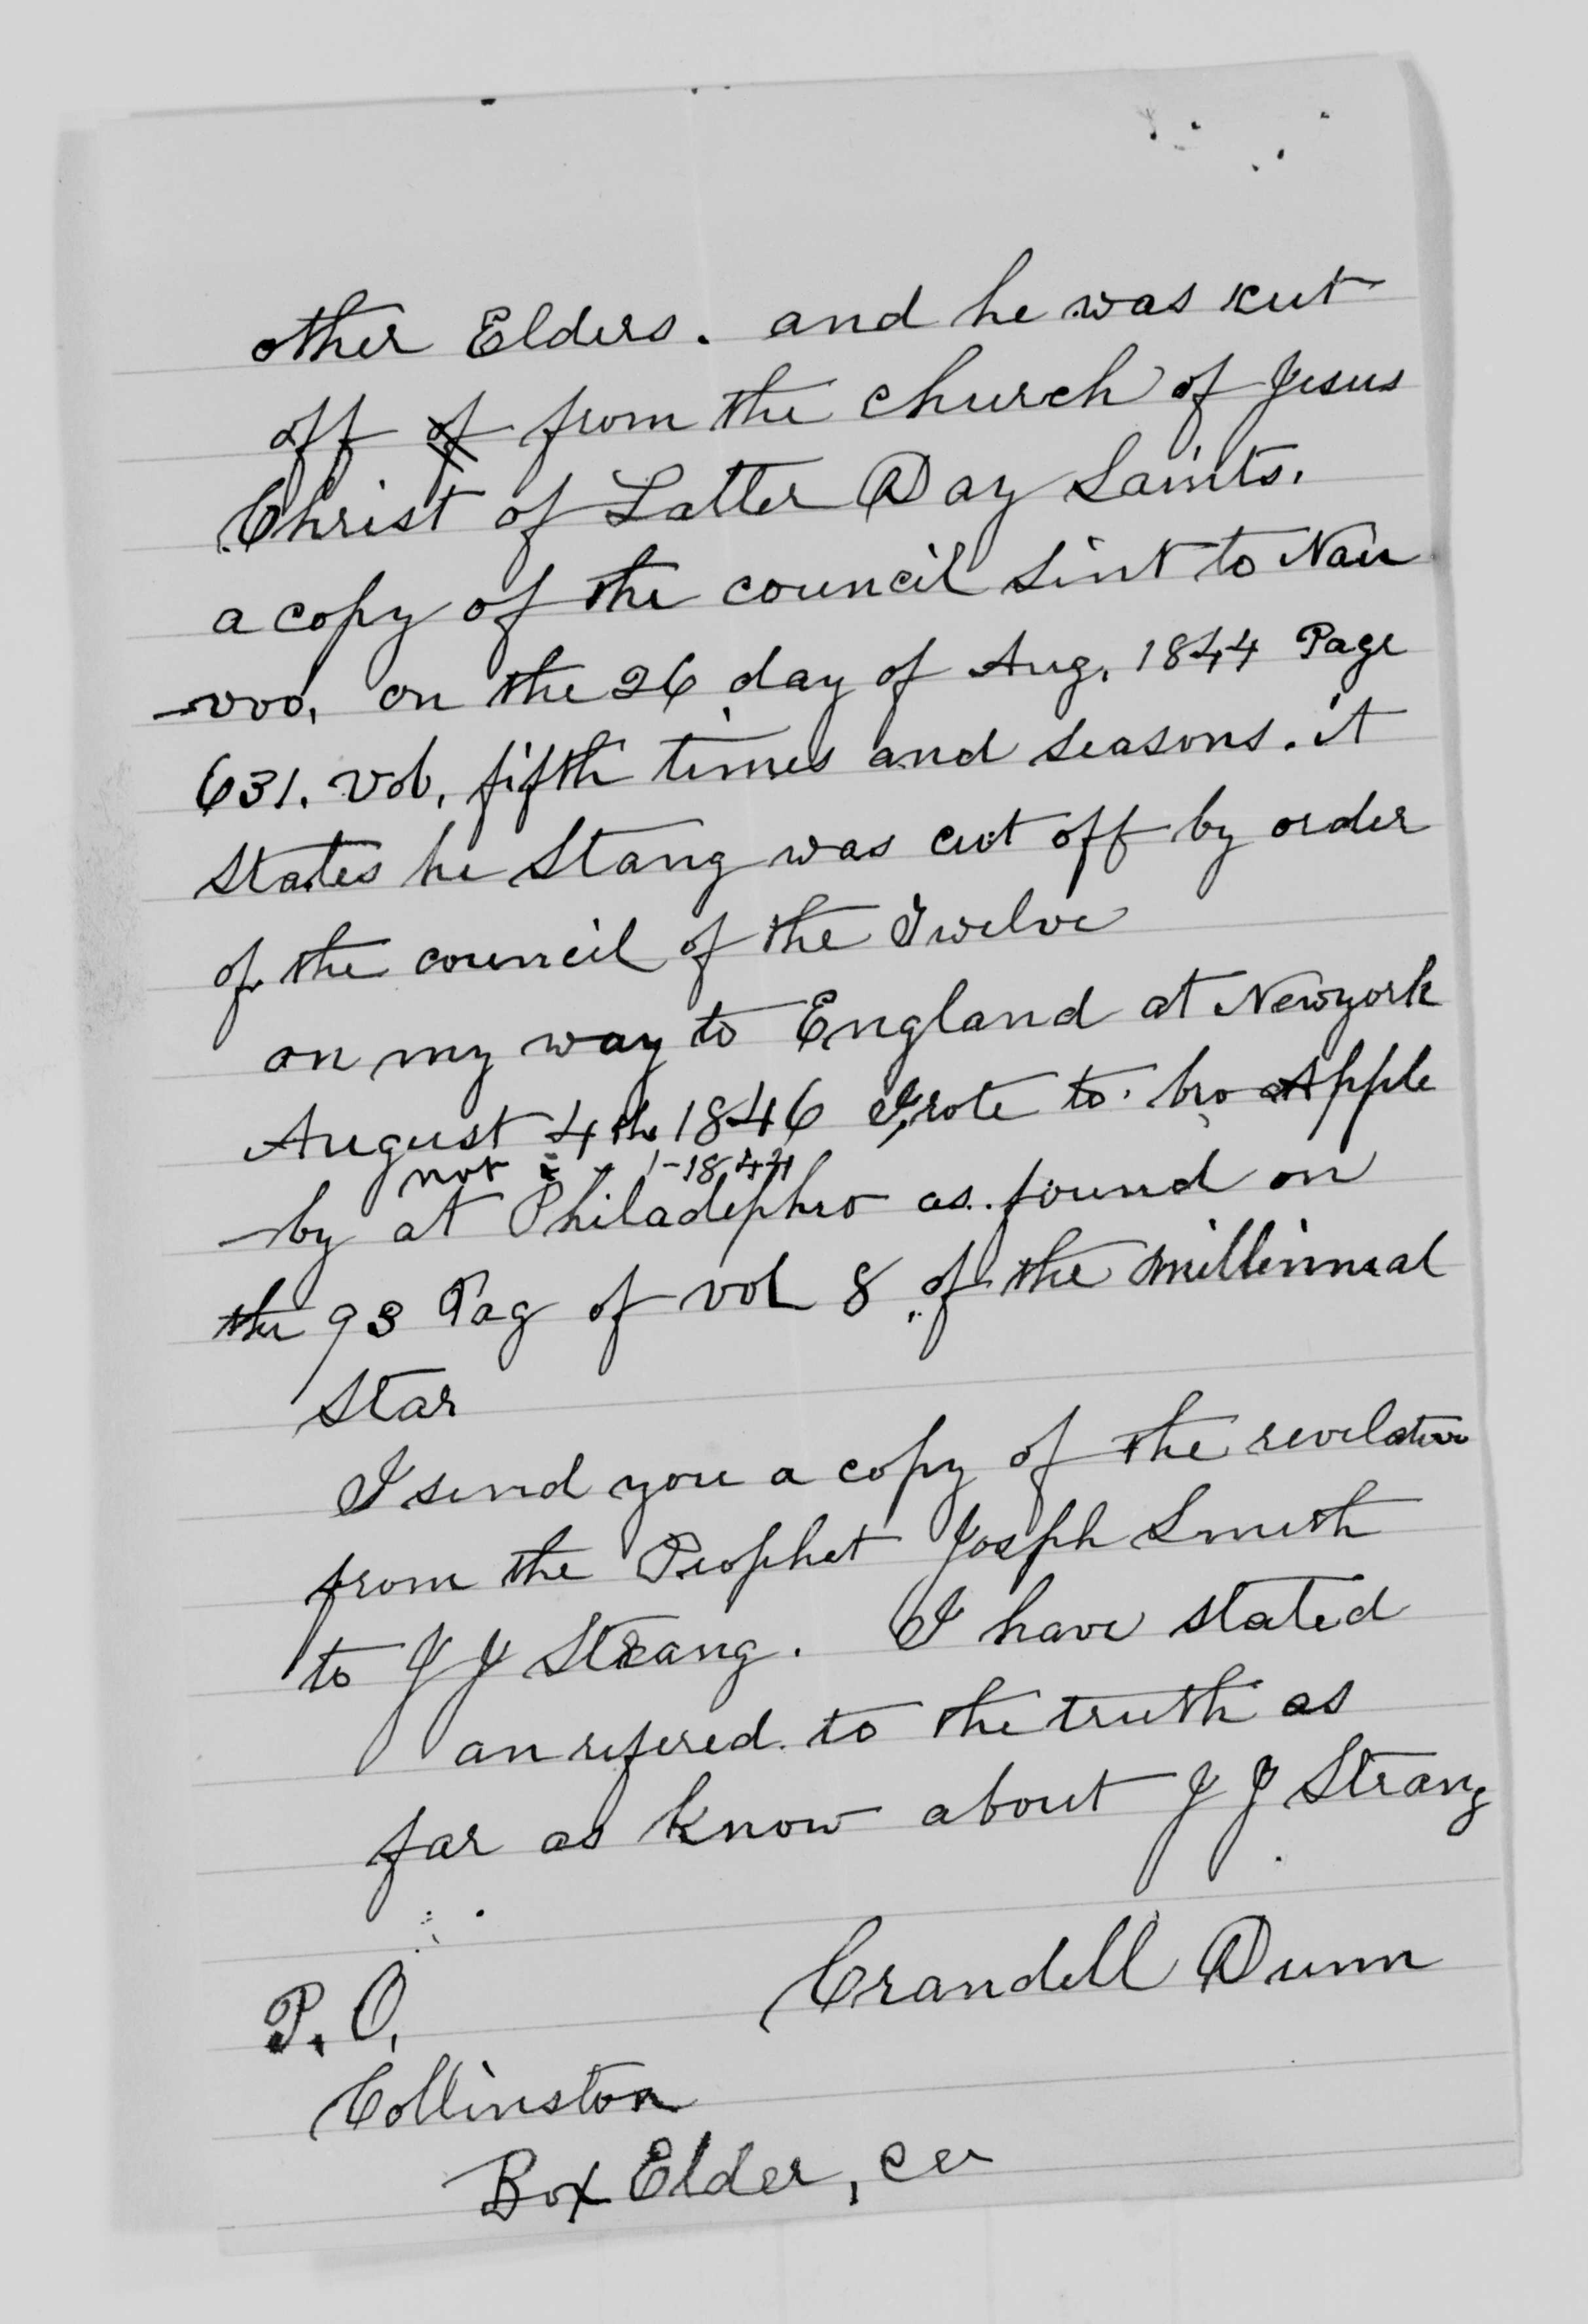 other Elders. and he was cut
off of from the church of Jesus
Christ of Latter Day Saints.
a copy of the council sint to Nau
-voo, on the 26 day of Aug, 1844 Page
631. Vol, fifth times and seasons. it
states he Stang was cut off by order
of the council of the Twelve
on my way to England at Newyork
August 4th 1846 I rote to bro Apple
not 1-1844
-by at Philadephio as found on
the 93 Pag of vol 8 of the millinneal
Star
I send you a copy of the revelation
from the Prophet Josph Smith
to J J Strang. I have stated
an refered to the truth as
far as know about J J Strang
Crandell Dunn
P. O.
Collinston
Box Elder, co